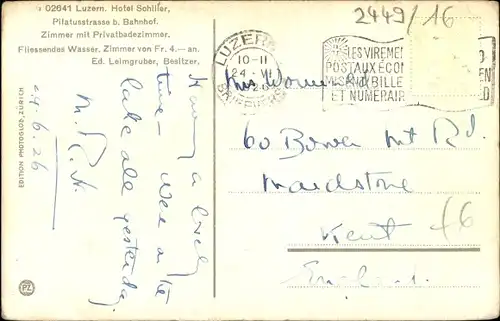 02641 Luzern. Hotel Schiller,
Pilatusstrasse b. Bahnhof.
Zimmer mit Privatbadezimmer.
Fliessendes Wasser. Zimmer von Fr. 4.— an.
Ed. Leimgruber, Besitzer.
2449/16
LUZERN
10-11
24. VI
LES VIREMEN
POSTAUX ÉCON
BILLE
ET NUMÉRAIR
60 Bower Mt Rd.
Maidstone
Kent
England.
Having a lovely
time – Were on the
lake all yesterday
M.
24.6.26
EDITION PHOTOGLOB, ZÜRICH
PZ